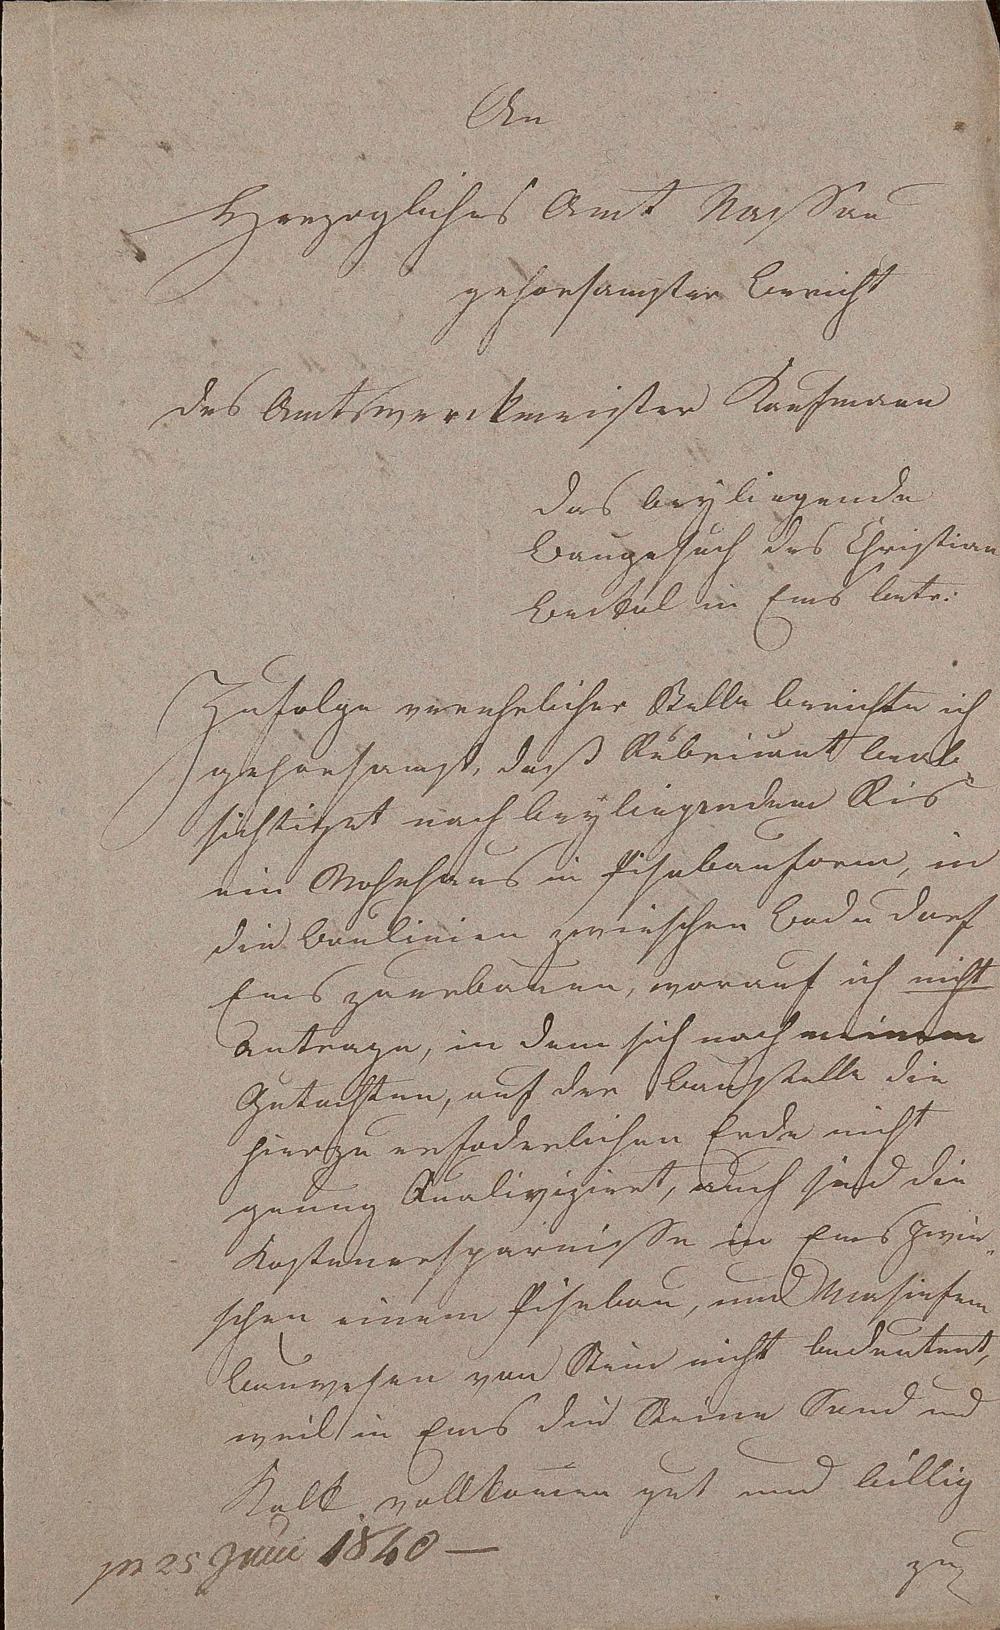 An
Herzogliches Amt Nassau
gehorsamster Bericht
des Amtswerckmeister Kaufmann
das beyliegende
Baugesuch des Christian
Bertal in Ems betr:
Zufolge verehrlicher Stelle berichte ich
gehorsamst, daß Rubricant beab-
sichtiget nach beyliegendem Ris
ein Wohnhaus in Pisebauform, in
die Baulinien zwischen Bad u Dorf
Ems zuerbauen, worauf ich nicht
antrage, in dem sich nach meinem
Gutachten, auf der Baustelle die
hierzu erfoderlichen Erde nicht
genug Qualiviziret, auch sind die
Kostenersparnisse in Ems zwi-
schen einem Pisebau, und Masiefem
Bauwesen von Stein nicht bedeutent,
weil in Ems die Steine Sand und
Kalk vollkomen gut und billig
zu
pr 25 Juni 1840 —